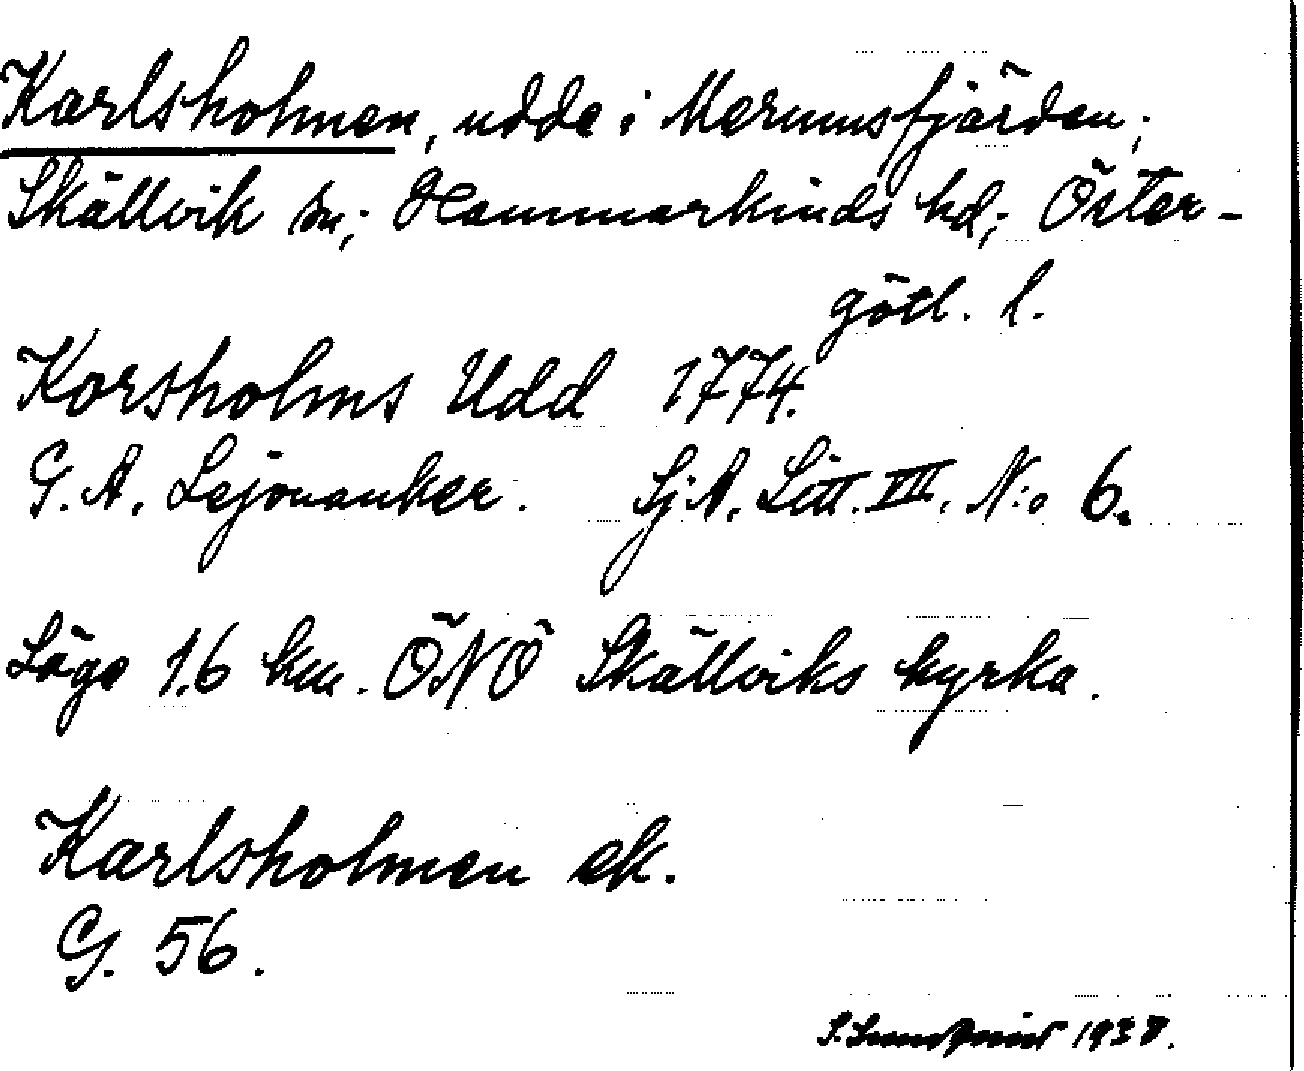 Karlsholmen, udde i Merumsfjärden;
Skällvik sn; Hammarkinds hd; Öster-
götl. l.
Korsholms Udd 1774.
G. A. Lejonanker. Sj.A. Litt. VII. N:o 6.
Läge 1,6 km. ÖNÖ Skällviks kyrka.
Karlsholmen ek.
G. 56.
S. Lundqvist 1938.